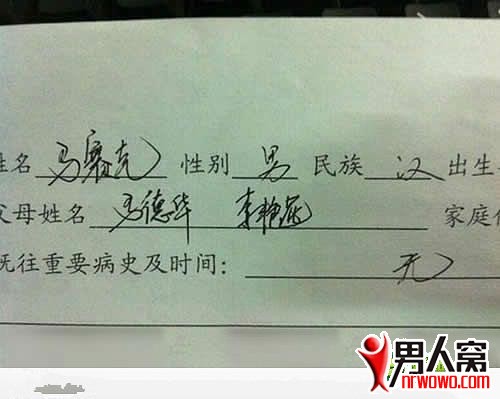 姓名 马赛克 性别 男 民族 汉 出生
父母姓名 马德华 李艳 家庭
既往重要病史及时间： 无
男人窝
nrwowo.com